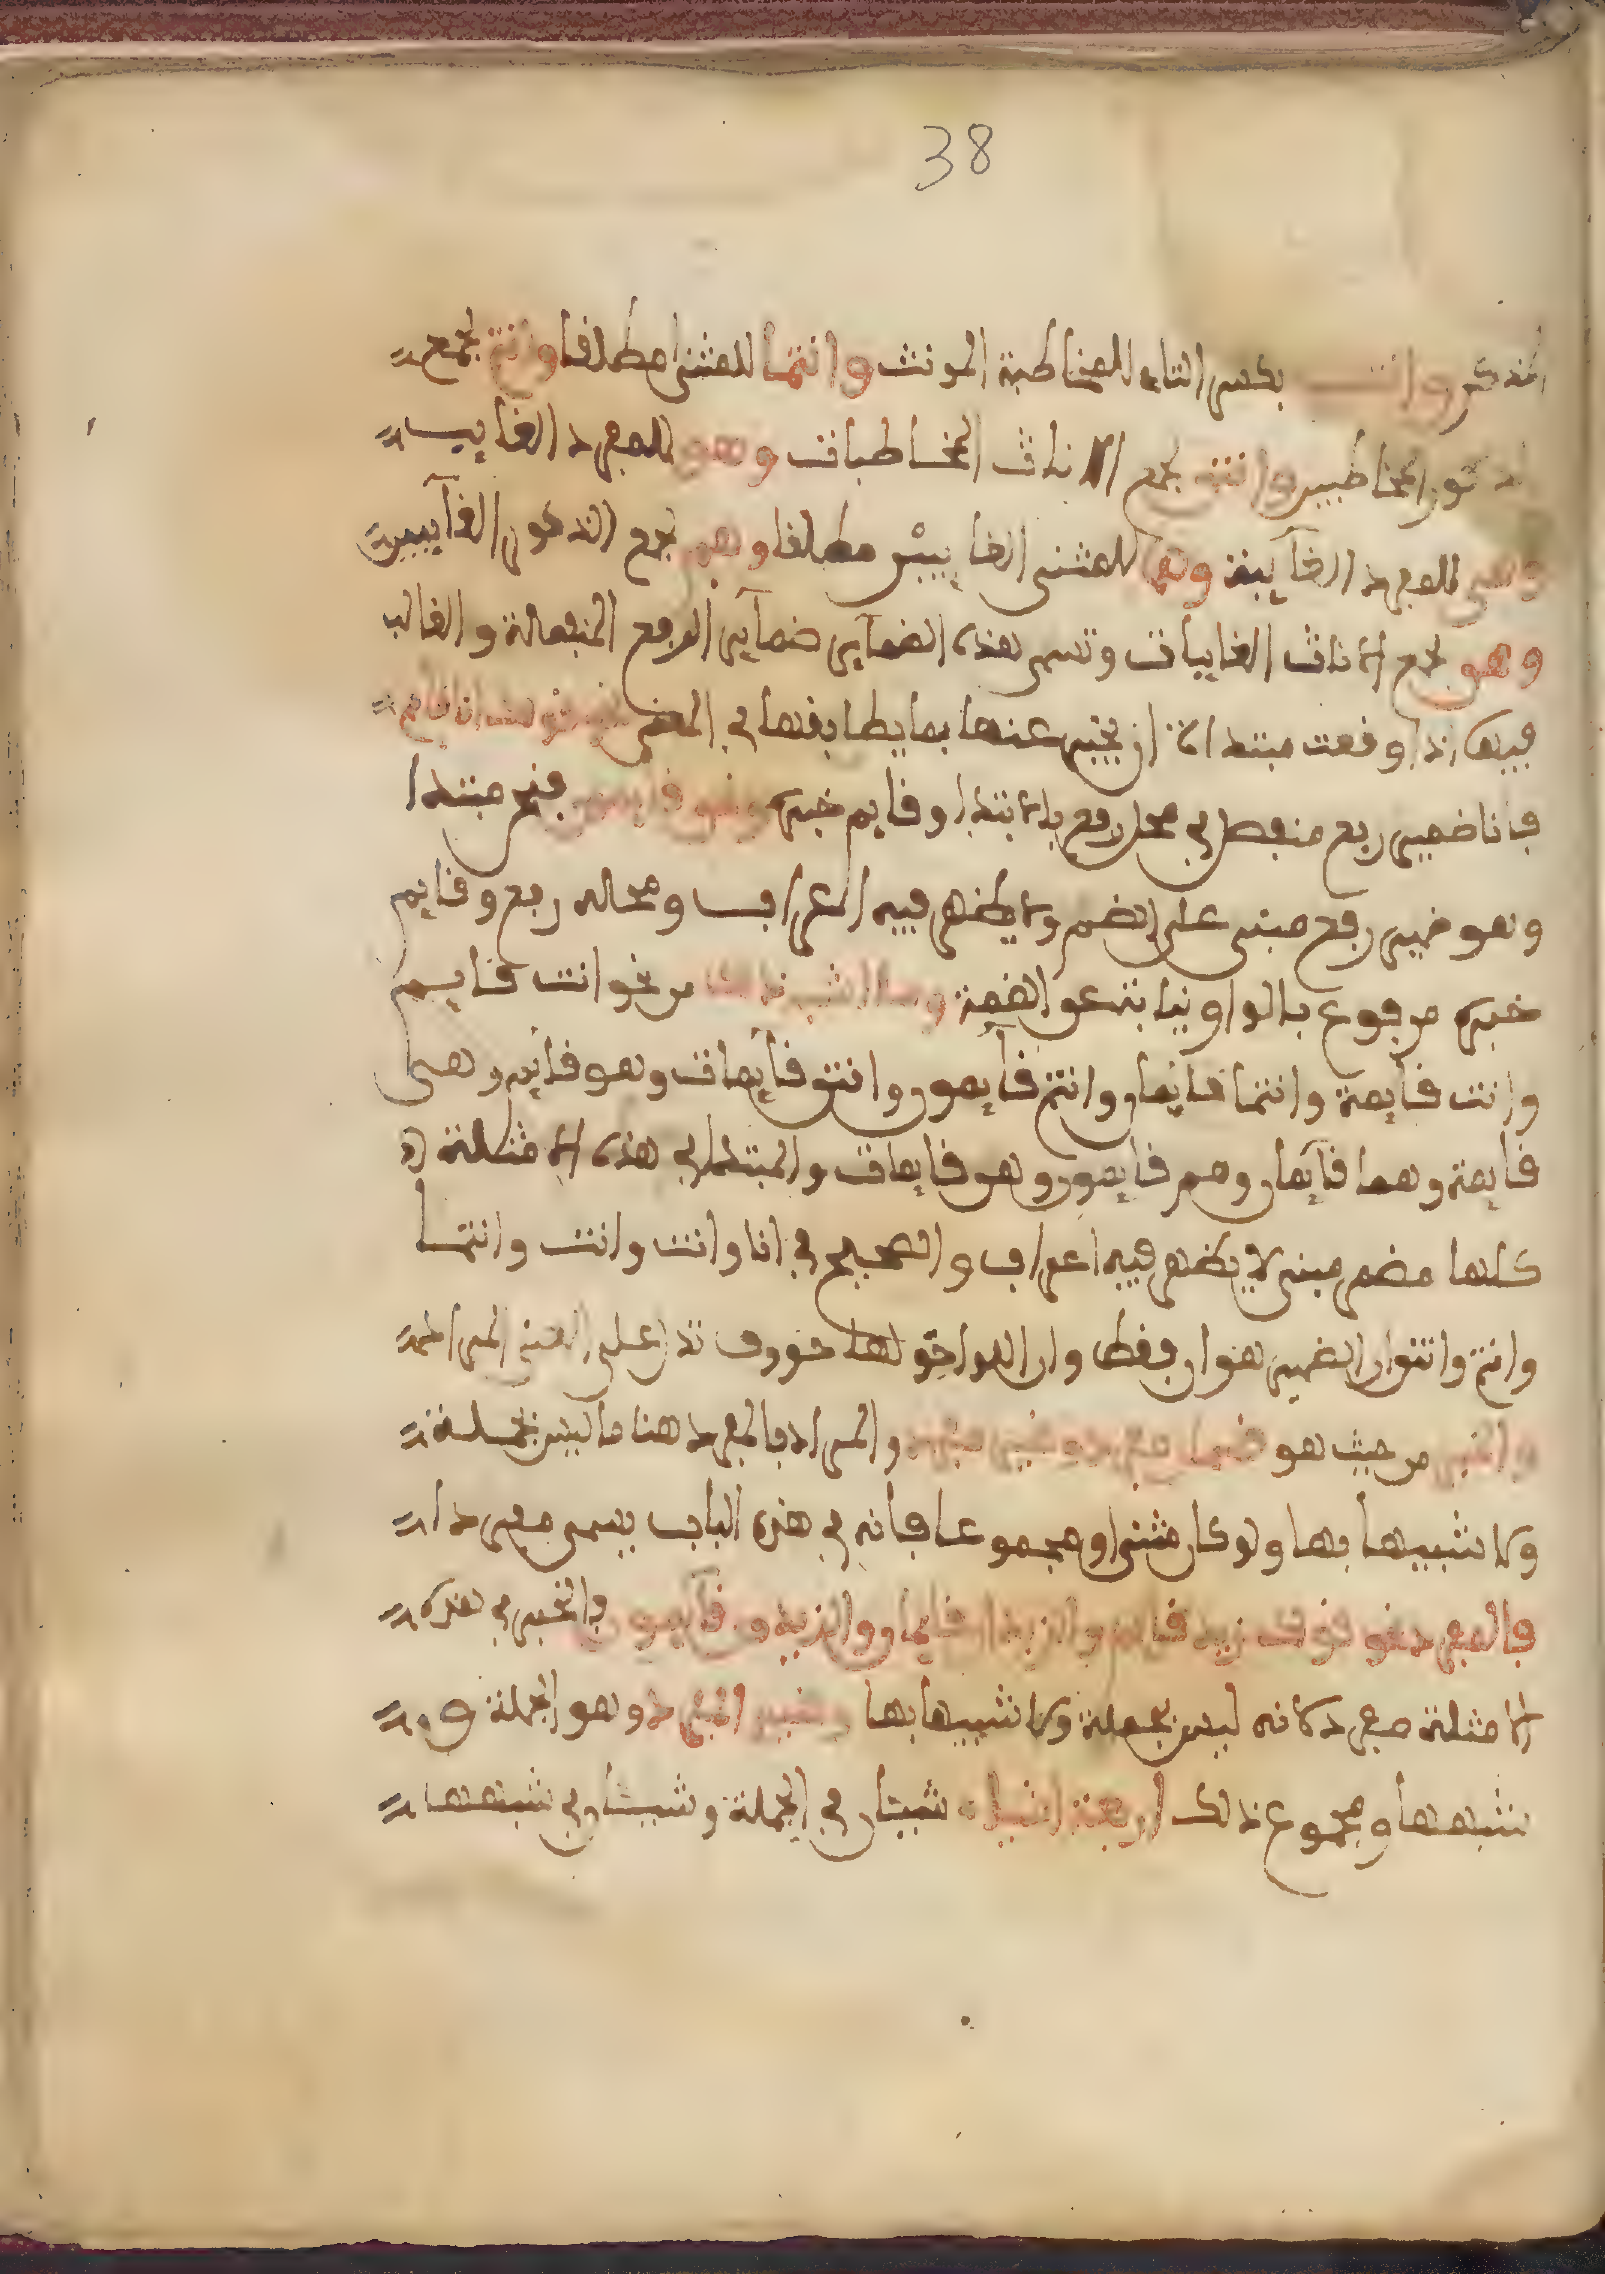 38
المذكر وانت بكسر التاء للمخاطبة المونث وانتما للمثنى مطلقا وانتم لجمع
الذكور المخاطبين وانتن لجمع الاناث المخاطبات وهو للمفرد الغايب
وهي للمفرد الغآيبة وهما للمثنى الغايبين مطلقا وهم لجمع الذكور الغآيبين
وهن لجمع الاناث الغايبات وتسمى هذه الضمآير ضمآير الرفع المنفصلة والغالب
فيها اذا وقعت مبتدا ان يخبر عنها بما يطابقها في المعنى نحو قولك انا قايم
فانا ضمير رفع منفصل في محل رفع بالابتدا وقايم خبره ونحن قايمون فنحن مبتدا
وهو ضمير رفع مبني على الضم ولا يظهر فيه الاعراب ومحله رفع وقايم
خبره مرفوع بالواو نيابة عن الضمة وما اشبه ذلك من نحو انت قايم
وانت قايمة وانتما قايمان وانتم قآيمون وانتن قآيمات وهو قايم وهي
قايمة وهما قآيمان وهم قايمون وهن قايمات والمبتدا في هذه الامثلة
كلها مضمر مبني لا يظهر فيه اعراب والصحيح في انا وانت وانت وانتما
وانتم وانتن ان الضمير هو ان فقط وان اللواحق لها حروف تدل على المعنى المراد
والخبر من حيث هو قسمان مفرد وغير مفرد والمراد بالمفرد هنا ما ليس بجملة
ولا شبيها بها ولو كان مثنى او مجموعا فانه في هذه الباب يسمى مفردا
فالمفرد نحو قولك زيد قايم والزيدان قايمان والزيدون قآيمون فالخبر في هذه
الامثلة مفرد لانه ليس بجملة ولا شبيها بها وغير المفرد وهو الجملة و
شبهها ومجموع ذلك اربعة اشيا شيئان في الجملة وشيئان في شبهها